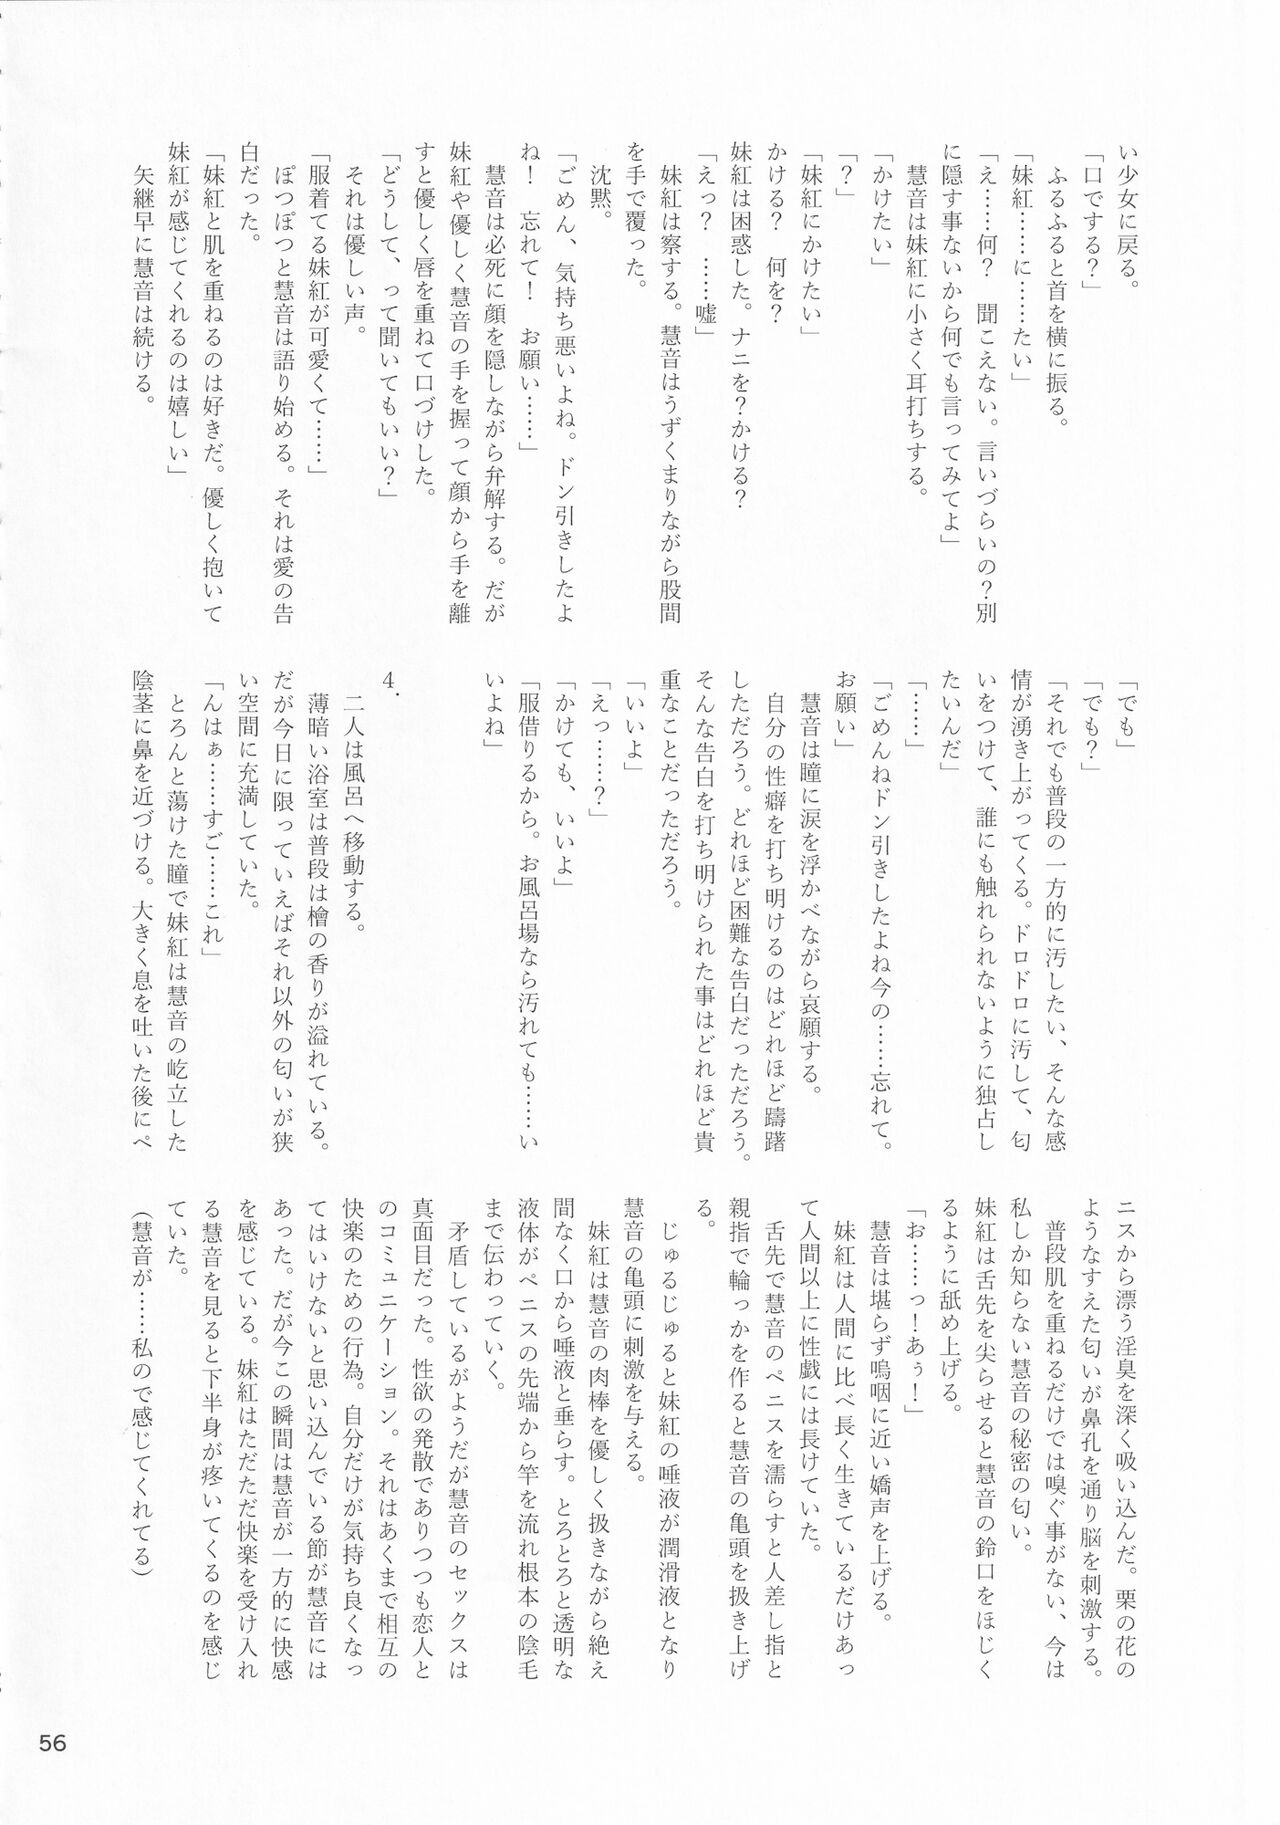 い少女に戻る。
「口でする？」
ふるふると首を横に振る。
「妹紅……に……たい」
「え……何？　聞こえない。言いづらいの？別
に隠す事ないから何でも言ってみてよ」
慧音は妹紅に小さく耳打ちする。
「かけたい」
「？」
「妹紅にかけたい」
かける？　何を？
妹紅は困惑した。ナニを？かける？
「えっ？　……嘘」
妹紅は察する。慧音はうずくまりながら股間
を手で覆った。
沈黙。
「ごめん、気持ち悪いよね。ドン引きしたよ
ね！　忘れて！　お願い……」
慧音は必死に顔を隠しながら弁解する。だが
妹紅や優しく慧音の手を握って顔から手を離
すと優しく唇を重ねて口づけした。
「どうして、って聞いてもいい？」
それは優しい声。
「服着てる妹紅が可愛くて……」
ぽつぽつと慧音は語り始める。それは愛の告
白だった。
「妹紅と肌を重ねるのは好きだ。優しく抱いて
妹紅が感じてくれるのは嬉しい」
矢継早に慧音は続ける。
「でも」
「でも？」
「それでも普段の一方的に汚したい、そんな感
情が湧き上がってくる。ドロドロに汚して、匂
いをつけて、誰にも触れられないように独占し
たいんだ」
「……」
「ごめんねドン引きしたよね今の……忘れて。
お願い」
慧音は瞳に涙を浮かべながら哀願する。
自分の性癖を打ち明けるのはどれほど躊躇
しただろう。どれほど困難な告白だっただろう。
そんな告白を打ち明けられた事はどれほど貴
重なことだっただろう。
「いいよ」
「えっ……？」
「かけても、いいよ」
「服借りるから。お風呂場なら汚れても……い
いよね」
4.
二人は風呂へ移動する。
薄暗い浴室は普段は檜の香りが溢れている。
だが今日に限っていえばそれ以外の匂いが狭
い空間に充満していた。
「んはぁ……すご……これ」
とろんと蕩けた瞳で妹紅は慧音の屹立した
陰茎に鼻を近づける。大きく息を吐いた後にペ
ニスから漂う淫臭を深く吸い込んだ。栗の花の
ようなすえた匂いが鼻孔を通り脳を刺激する。
普段肌を重ねるだけでは嗅ぐ事がない、今は
私しか知らない慧音の秘密の匂い。
妹紅は舌先を尖らせると慧音の鈴口をほじく
るように舐め上げる。
「お……っ！あぅ！」
慧音は堪らず嗚咽に近い嬌声を上げる。
妹紅は人間に比べ長く生きているだけあっ
て人間以上に性戯には長けていた。
舌先で慧音のペニスを濡らすと人差し指と
親指で輪っかを作ると慧音の亀頭を扱き上げ
る。
じゅるじゅると妹紅の唾液が潤滑液となり
慧音の亀頭に刺激を与える。
妹紅は慧音の肉棒を優しく扱きながら絶え
間なく口から唾液と垂らす。とろとろと透明な
液体がペニスの先端から竿を流れ根本の陰毛
まで伝わっていく。
矛盾しているがようだが慧音のセックスは
真面目だった。性欲の発散でありつつも恋人と
のコミュニケーション。それはあくまで相互の
快楽のための行為。自分だけが気持ち良くなっ
てはいけないと思い込んでいる節が慧音には
あった。だが今この瞬間は慧音が一方的に快感
を感じている。妹紅はただただ快楽を受け入れ
る慧音を見ると下半身が疼いてくるのを感じ
ていた。
（慧音が……私ので感じてくれてる）
56